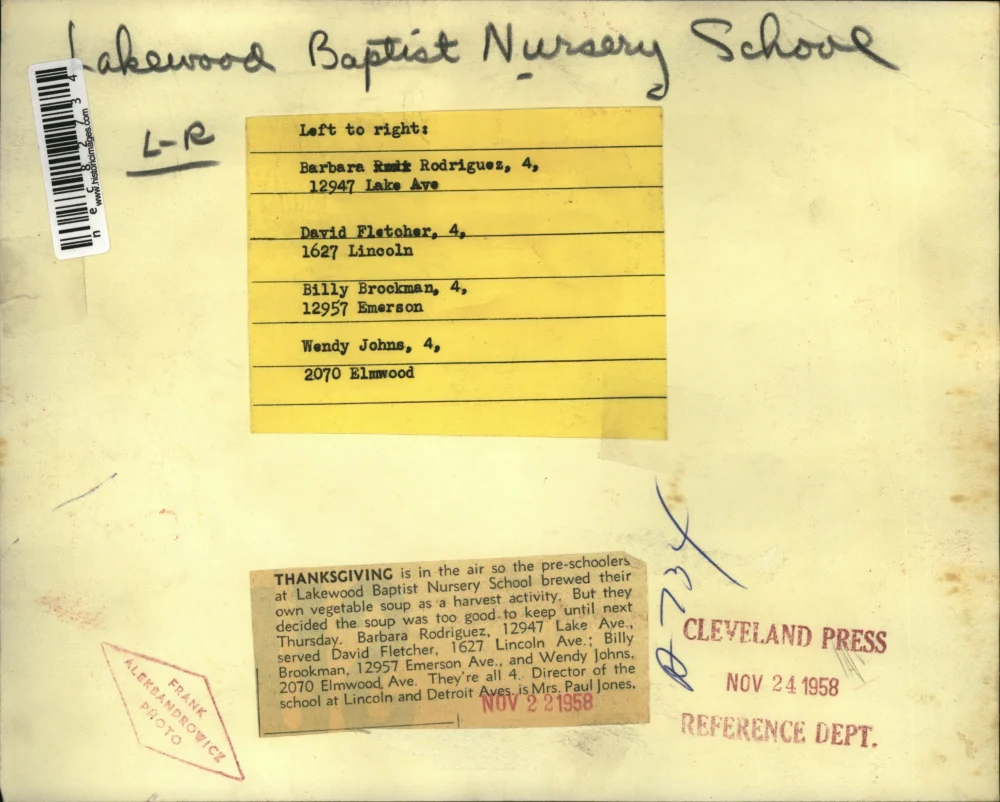 Lakewood Baptist Nursery School
L-R
nec82734
www.historicimages.com
Left to right:
Barbara Rodriguez, 4,
12947 Lake Ave
David Fletcher, 4,
1627 Lincoln
Billy Brockman, 4,
12957 Emerson
Wendy Johns, 4,
2070 Elmwood
A-734
THANKSGIVING is in the air so the pre-schoolers
at Lakewood Baptist Nursery School brewed their
own vegetable soup as a harvest activity. But they
decided the soup was too good to keep until next
Thursday. Barbara Rodriguez, 12947 Lake Ave.,
served David Fletcher, 1627 Lincoln Ave.; Billy
Brookman, 12957 Emerson Ave., and Wendy Johns,
2070 Elmwood Ave. They're all 4. Director of the
school at Lincoln and Detroit Aves. is Mrs. Paul Jones.
NOV 22 1958
CLEVELAND PRESS
NOV 24 1958
REFERENCE DEPT.
FRANK
ALEKSANDROWICZ
PHOTO